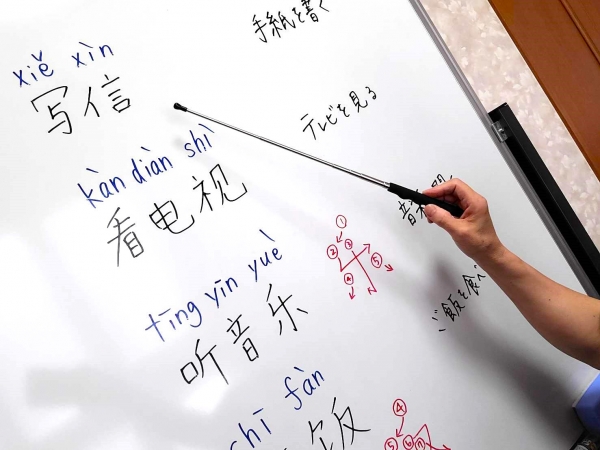 xiě xìn
写信 手紙を書く
kàn diàn shì
看电视 テレビを見る
tīng yīn yuè
听音乐 音
① 
② ③
④ ⑤
shī fàn
饭 ご飯を食べ
④
⑤ ⑥ ⑦